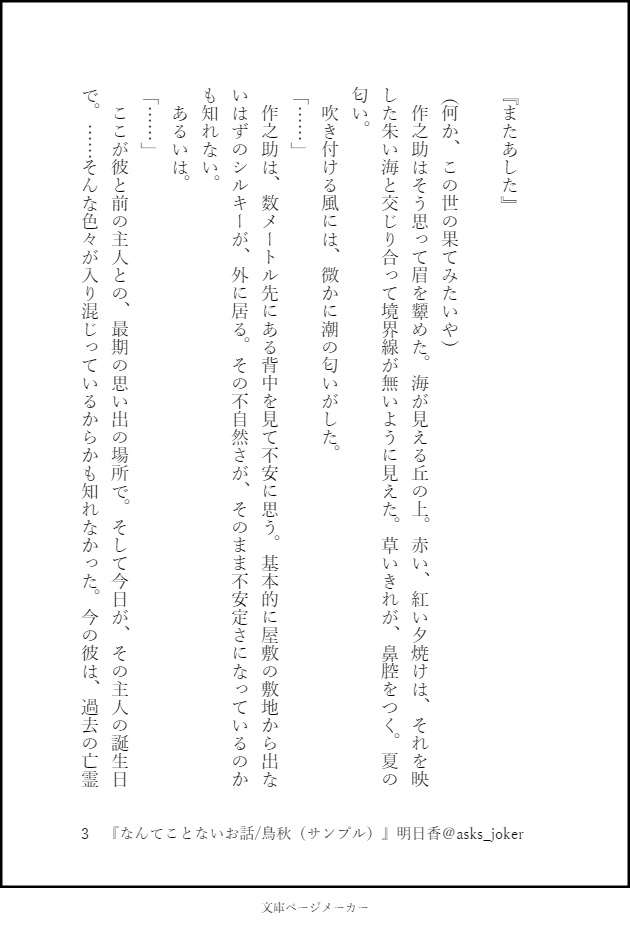 『またあした』
(何か、この世の果てみたいや)
　作之助はそう思って眉を顰めた。海が見える丘の上。赤い、紅い夕焼けは、それを映
した朱い海と交じり合って境界線が無いように見えた。草いきれが、鼻腔をつく。夏の
匂い。
　吹き付ける風には、微かに潮の匂いがした。
「……」
　作之助は、数メートル先にある背中を見て不安に思う。基本的に屋敷の敷地から出な
いはずのシルキーが、外に居る。その不自然さが、そのまま不安定さになっているのか
も知れない。
　あるいは。
「……」
　ここが彼と前の主人との、最期の思い出の場所で。そして今日が、その主人の誕生日
で。……そんな色々が入り混じっているからかも知れなかった。今の彼は、過去の亡霊
3　『なんてことないお話/鳥秋（サンプル）』明日香@asks_joker
文庫ページメーカー